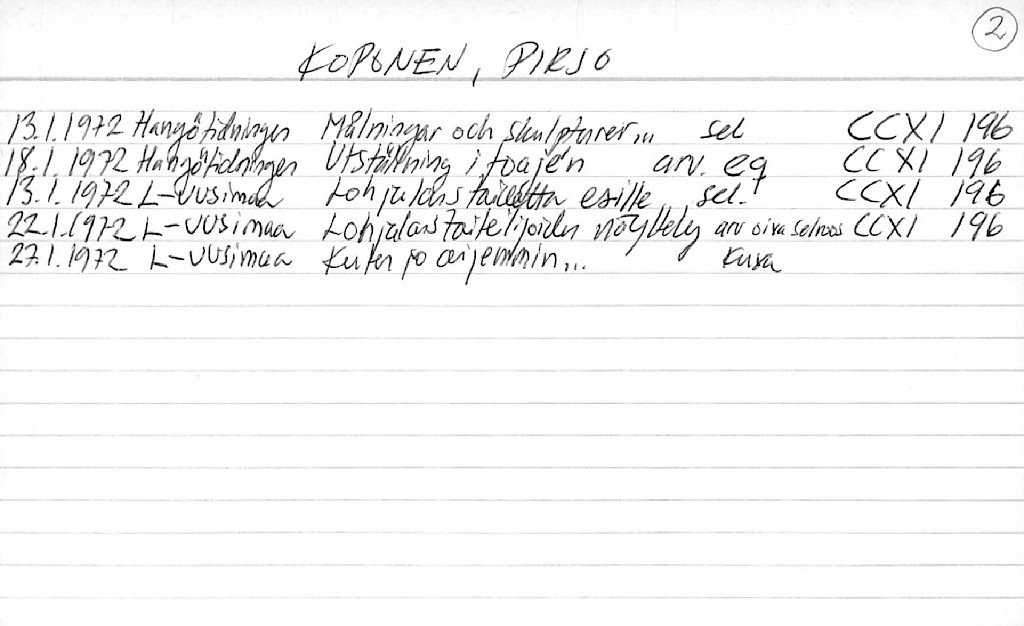 2
KOPONEN, PIRJO
13.1.1972 Hangötidningen Målningar och skulpturer... sel CCXI 196
18.1.1972 Hangötidningen Utställning i foajén arv. eq CCXI 196
13.1.1972 L-Uusimaa Lohjalaistaidetta esille sel. CCXI 196
22.1.1972 L-Uusimaa Lohjalaistaiteilijoiden näyttely arv oiva selroos CCXI 196
27.1.1972 L-Uusimaa Kuten jo aijemmin... Kuva